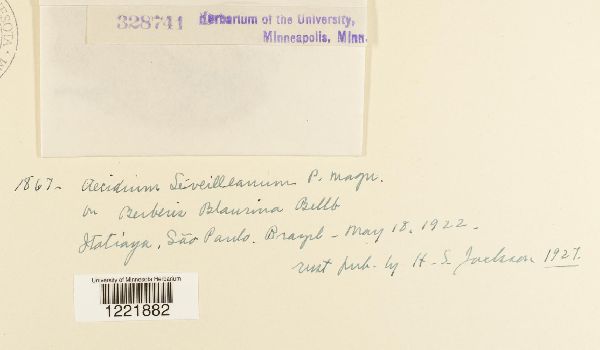 ESOTA · M
328741 Herbarium of the University,
Minneapolis, Minn.
1867- Aecidium Léveilleanum P. Magn.
on Berberis Blaurina Billb
Itatiaya, São Paulo. Brazil - May 18, 1922.
rust pub. by H. S. Jackson 1927.
University of Minnesota Herbarium
1221882